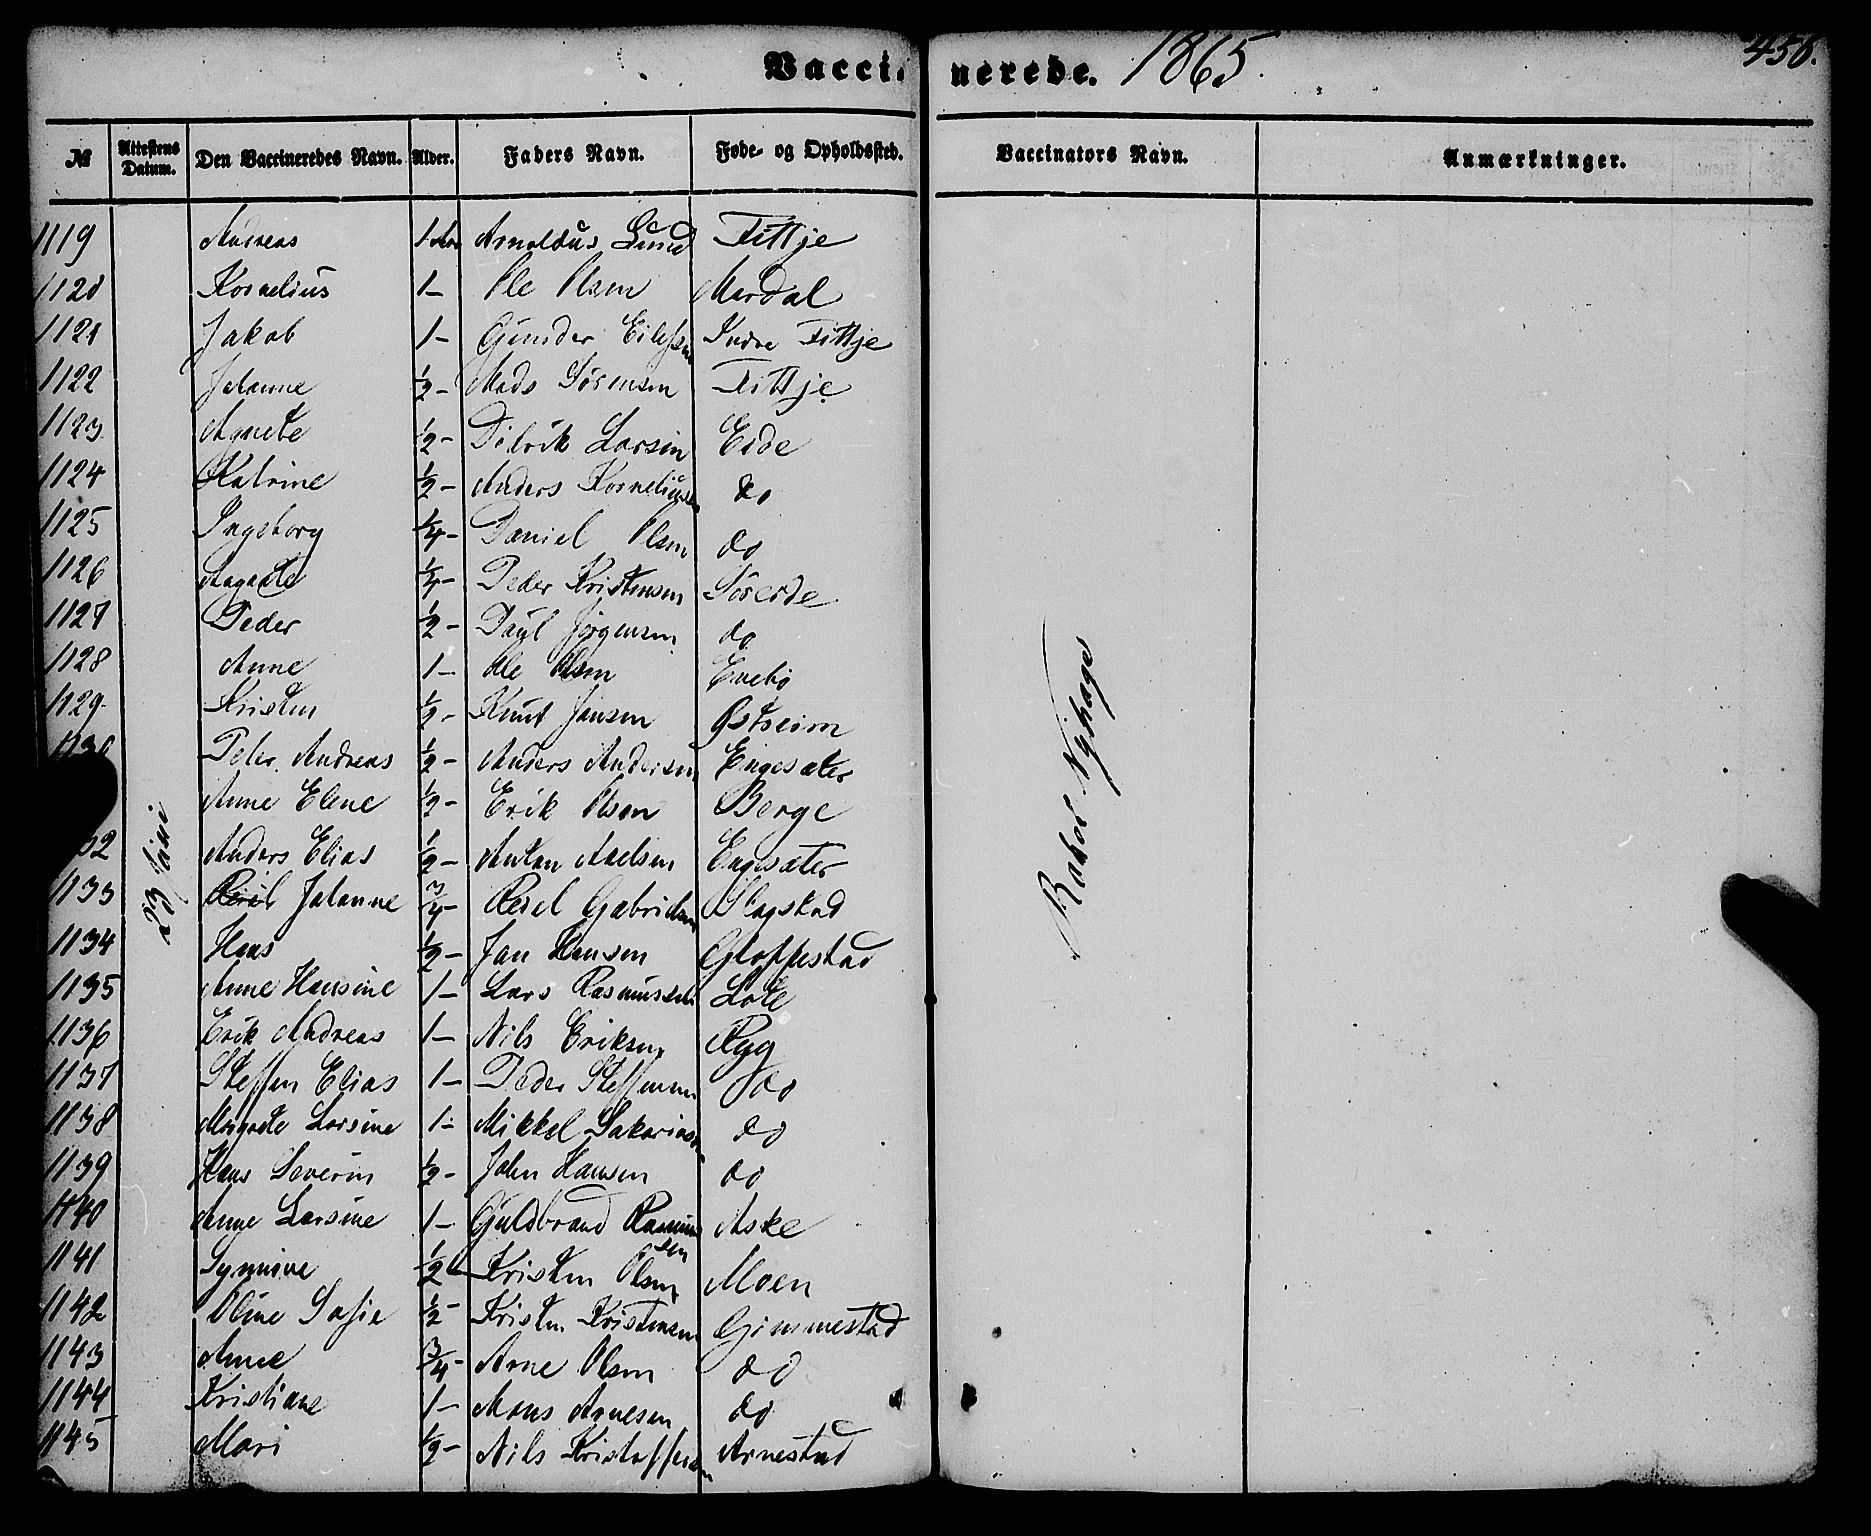 Vaccinerede. 1865. 456.
№ Attestens Datum. Den Vaccineredes Navn. Alder. Faders Navn. Føde- og Opholdssted. Vaccinators Navn. Anmærkninger.
23 Juni
Rakel Nyhage
1119 Andreas 1 Aar Arnoldus Lund Fittje
1120 Kornelius 1 – Ole Olsen Mardal
1121 Jakob 1 – Gunder Eilefsen Indre Fittje
1122 Johanne ½ – Mads Sörensen Fittje
1123 Agnete ½ – Didrik Larsen Eide
1124 Katrine ½ – Anders Korneliussen do
1125 Ingeborg ¼ – Daniel Olsen do
1126 Aagaate ¼ – Peder Kristensen Söreide
1127 Peder ½ – Paul Jörgensen do
1128 Anne 1 – Ole Olsen Enebö
1129 Kristen ½ – Knut Jansen Østreim
1130 Peter Andreas ½ – Anders Andersen Engesæter
Anne Elene ½ – Erik Olsen Berge
32 Anders Elias ½ – Anton Axelsen Engesæter
1133 Johanne ¾ – Reiel Gabrielsen Slagstad
1134 Hans ½ – Jan Hansen Gloppestad
1135 Anne Hansine 1 – Lars Rasmussen Lote
1136 Erik Andreas 1 – Nils Eriksen Ryg
1137 Steffen Elias 1 – Peder Steffensen do
1138 Margrete Larsine 1 – Mikkel Sakariasen do
1139 Hans Severin ½ – John Hansen do
1140 Anne Larsine 1 – Guldbrand Rasmussen Aske
1141 Synnive ½ – Kristen Olsen Moen
1142 Oline Sofie ½ – Kristen Kristensen Gimmestad
1143 Anne ¾ – Arne Olsen do
1144 Kristiane 1 – Mons Arnesen do
1145 Mari ½ – Nils Kristoffersen Arnestad